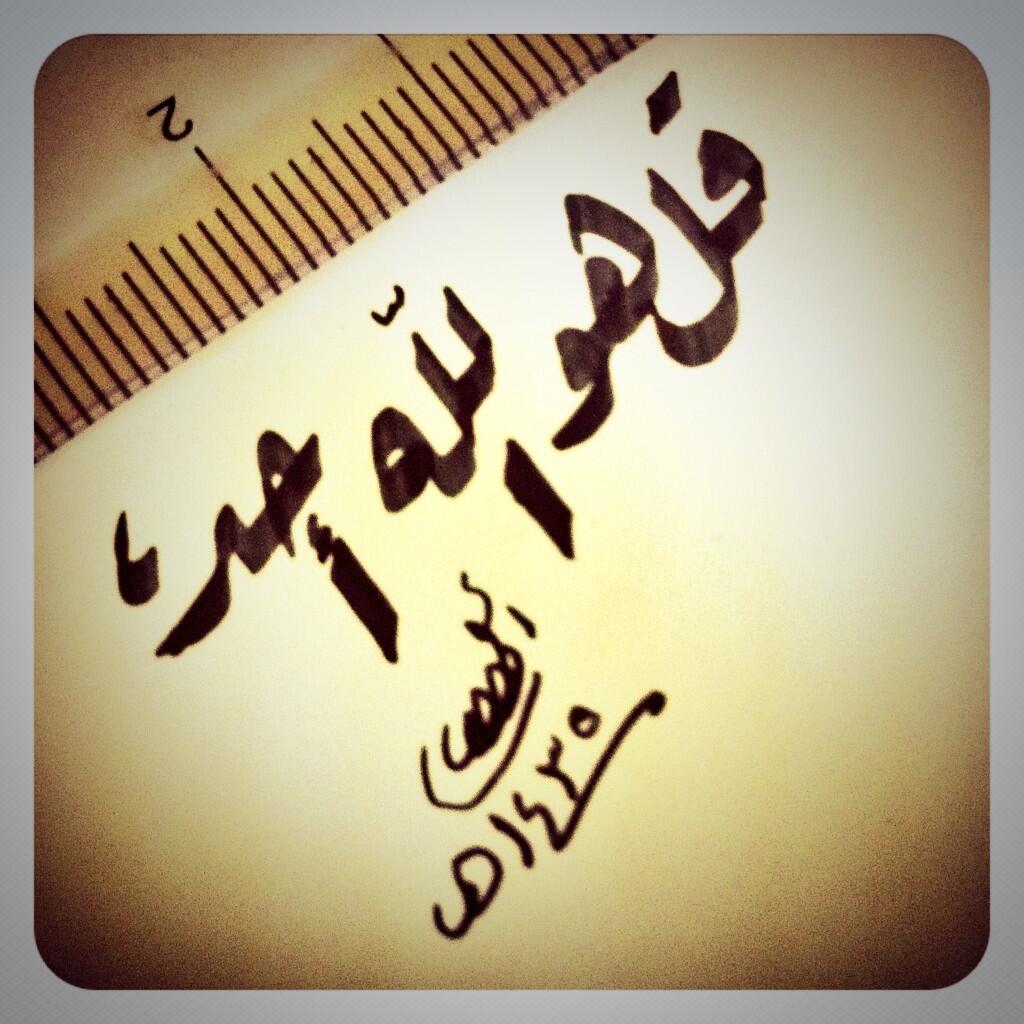 2
قل هو الله أحد
١٤٣٥هـ